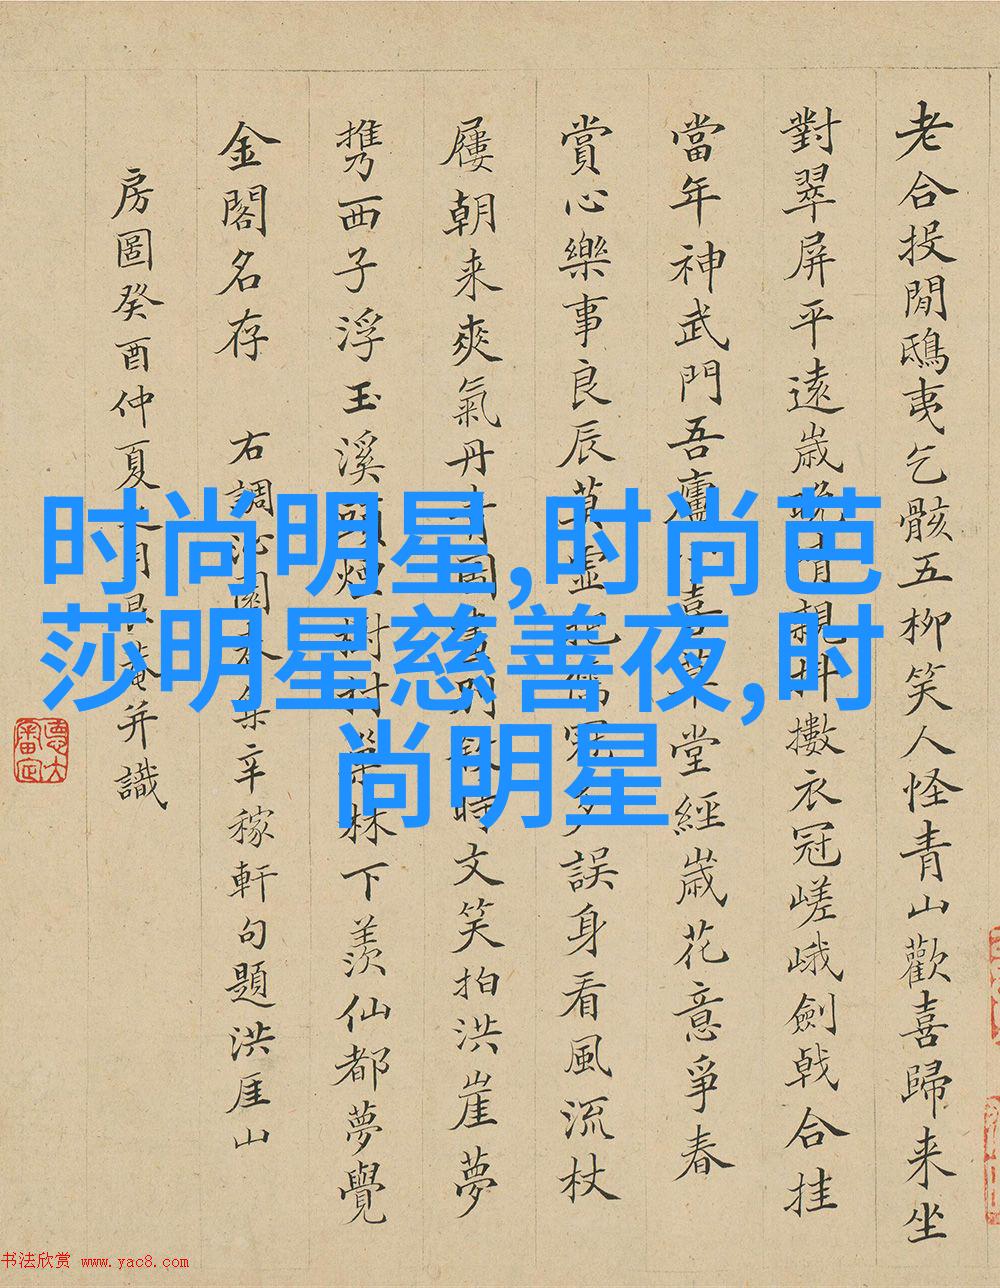 老合投閒鴟夷乞骸五柳笑人怪青山歡喜歸来坐
對翠屏平遠歲晚情親抖擻衣冠嵯峨劍戟合挂
當年神武門吾廬喜草堂經歲花意爭春
賞心樂事良辰莫虛儒冠多誤身看風流杖
屨朝来爽氣丹青圖畫時文笑拍洪崖夢
携西子浮玉溪頭烟樹村林下羨仙都夢覺
金閣名存 右調沁園春集辛稼軒句題洪厓山
房圖癸酉仲夏之月菴并識
时尚明星,时尚芭
莎明星慈善夜,时
尚明星
书法欣赏 www.yac8.com